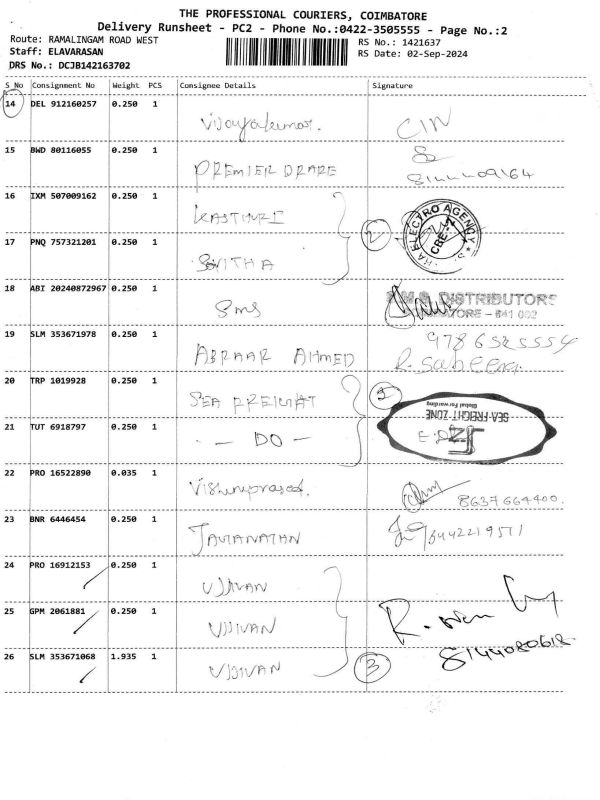 THE PROFESSIONAL COURIERS, COIMBATORE
Delivery Runsheet - PC2 - Phone No.:0422-3505555 - Page No.:2
Route: RAMALINGAM ROAD WEST
Staff: ELAVARASAN
DRS No.: DCJB142163702
RS No.: 1421637
RS Date: 02-Sep-2024
S_No Consignment No Weight PCS Consignee Details Signature
14 DEL 912160257 0.250 1 Vijayakumar. CIN
15 BWD 80116055 0.250 1 PREMIER DRAPE
16 IXM 507009162 0.250 1 KASTHURI
ELECTRO AGENCY
CBE-2
17 PNQ 757321201 0.250 1 SAVITHA 2
18 ABI 20240872967 0.250 1 SMS DISTRIBUTORS
- 641 002
19 SLM 353671978 0.250 1 ABRAAR AHMED 9786525554
R. Sabeena
20 TRP 1019928 0.250 1 SEA FREIGHT 2
SEA FREIGHT ZONE
Global Forwarding
21 TUT 6918797 0.250 1 - DO -
22 PRO 16522890 0.035 1 Vishnuprasad. 8637664400.
23 BNR 6446454 0.250 1
24 PRO 16912153 0.250 1 UJJIVAN
25 GPM 2061881 0.250 1 UJJIVAN
26 SLM 353671068 1.935 1 UJJIVAN 3 8144080612